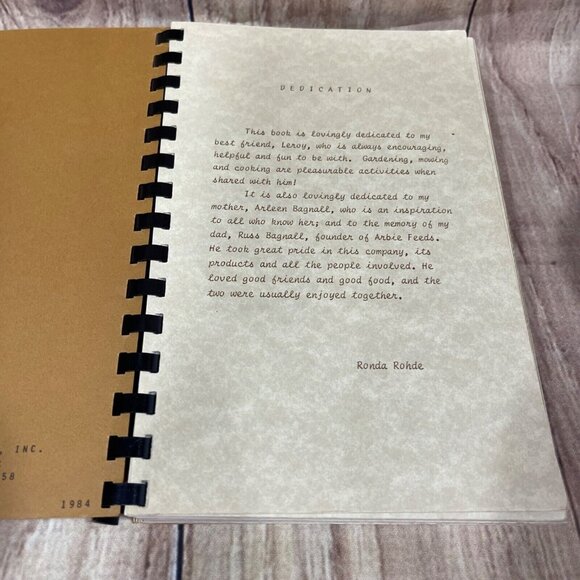 , INC.
58
1984
DEDICATION
This book is lovingly dedicated to my
best friend, Leroy, who is always encouraging,
helpful and fun to be with. Gardening, mowing
and cooking are pleasurable activities when
shared with him!
It is also lovingly dedicated to my
mother, Arleen Bagnall, who is an inspiration
to all who know her; and to the memory of my
dad, Russ Bagnall, founder of Arbie Feeds.
He took great pride in this company, its
products and all the people involved. He
loved good friends and good food, and the
two were usually enjoyed together.
Ronda Rohde